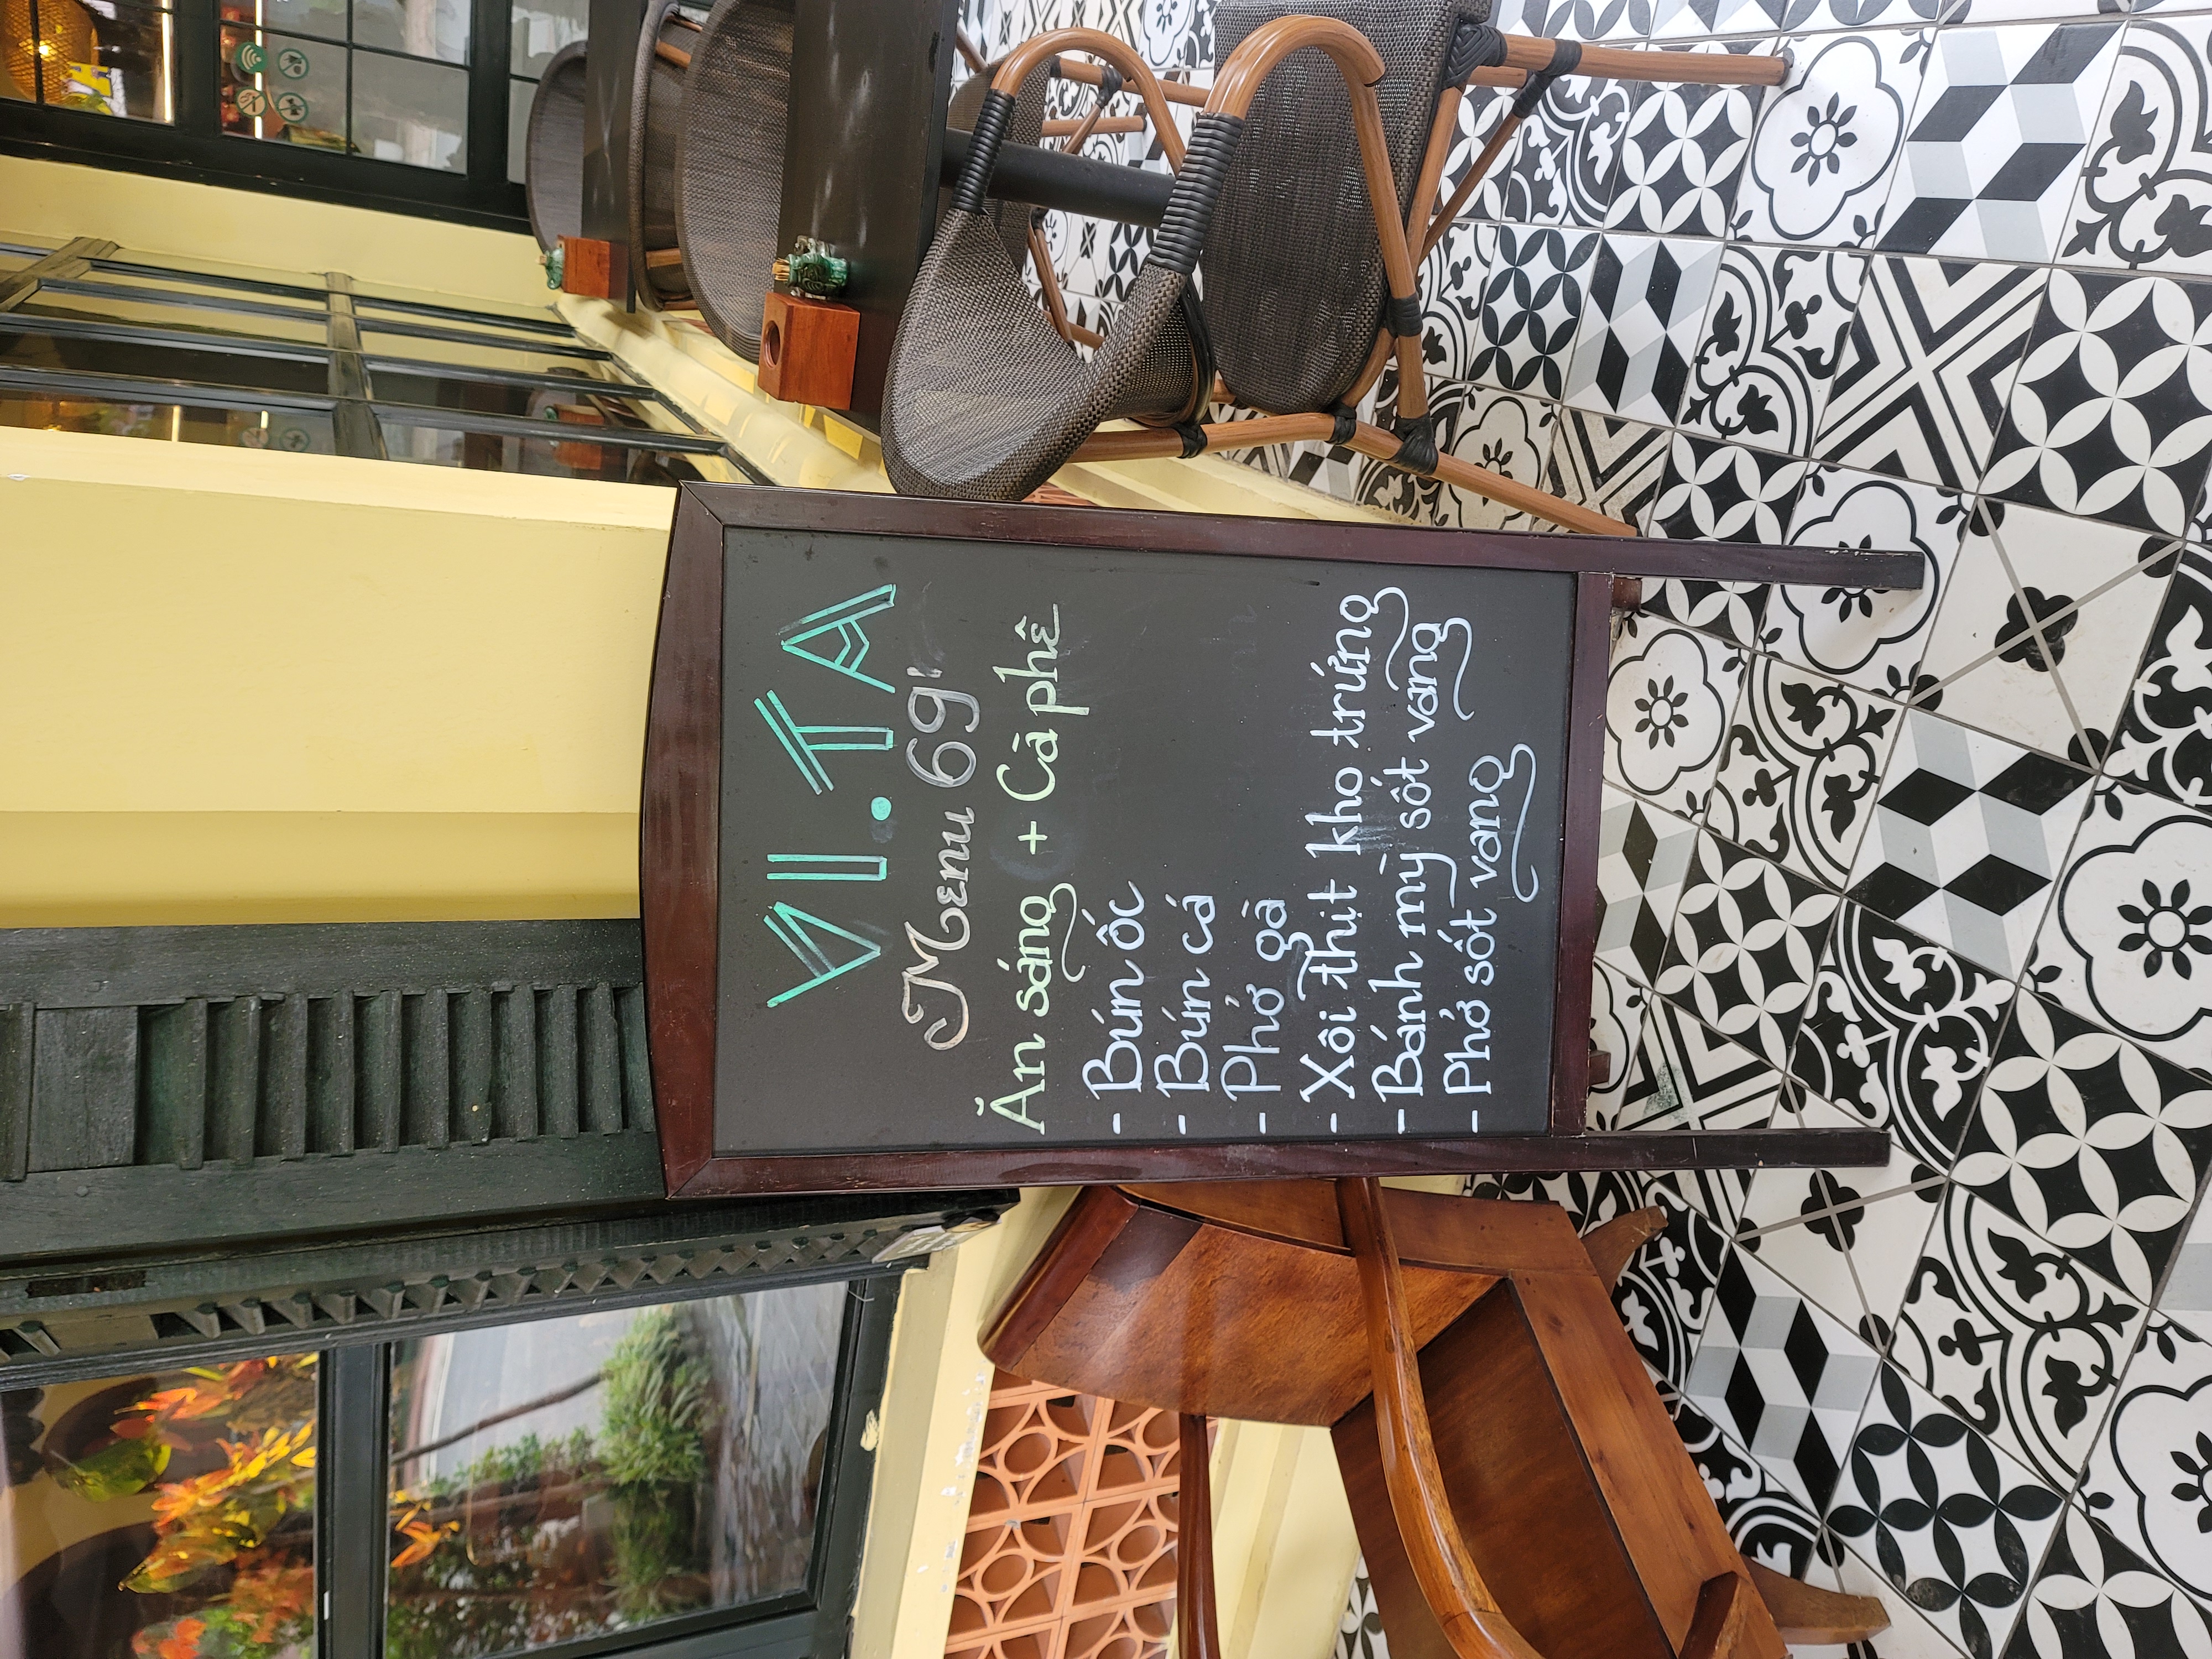 VI.TA
Menu 69'
Ăn sáng + Cà phê
- Bún ốc
- Bún cá
- Phở gà
- Xôi thịt kho trứng
- Bánh mỳ sốt vang
- Phở sốt vang